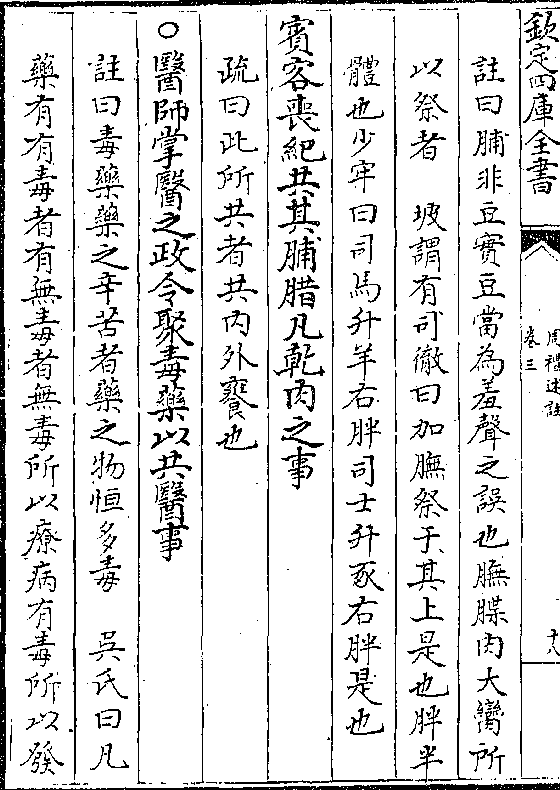 欽定四庫全書
周禮述註
卷三
十八
註曰脯非豆實豆當為羞聲之誤也膴䐑肉大臠所
以祭者　坡謂有司徹曰加膴祭于其上是也胖半
體也少牢曰司馬升羊右胖司士升豕右胖是也
賓客喪紀共其脯腊凡乾肉之事
疏曰此所共者共内外饔也
○醫師掌醫之政令聚毒藥以共醫事
註曰毒藥藥之辛苦者藥之物恒多毒　吳氏曰凡
藥有有毒者有無毒者無毒所以療病有毒所以發